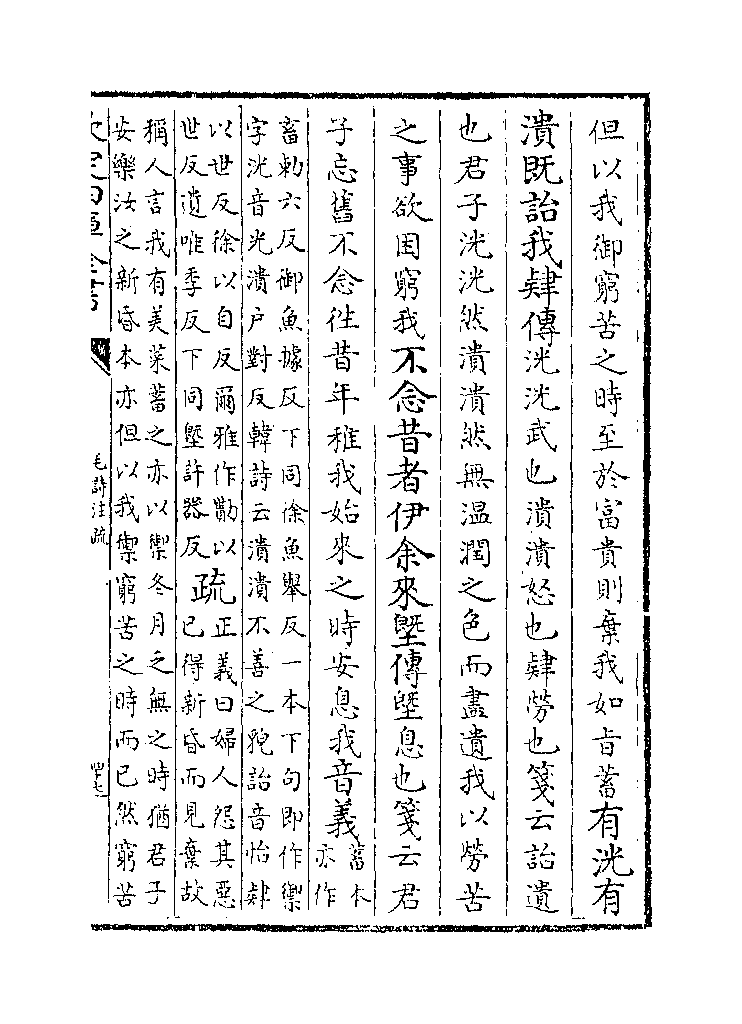 但以我御窮苦之時至於富貴則棄我如旨蓄有洸有
潰既詒我肄傳洸洸武也潰潰怒也肄勞也箋云詒遺
也君子洸洸然潰潰然無温潤之色而盡遺我以勞苦
之事欲困窮我不念昔者伊余來塈傳塈息也箋云君
子忘舊不念徃昔年稚我始來之時安息我音義
蓄本
亦作
畜勅六反御魚據反下同徐魚舉反一本下句即作禦
字洸音光潰户對反韓詩云潰潰不善之貌詒音怡肄
以世反徐以自反爾雅作勩以
世反遺唯季反下同塈許器反
疏
正義曰婦人怨其惡
已得新昏而見棄故
稱人言我有美菜蓄之亦以禦冬月乏無之時猶君子
安樂汝之新昏本亦但以我禦窮苦之時而已然窮苦
毛詩注疏
四十七